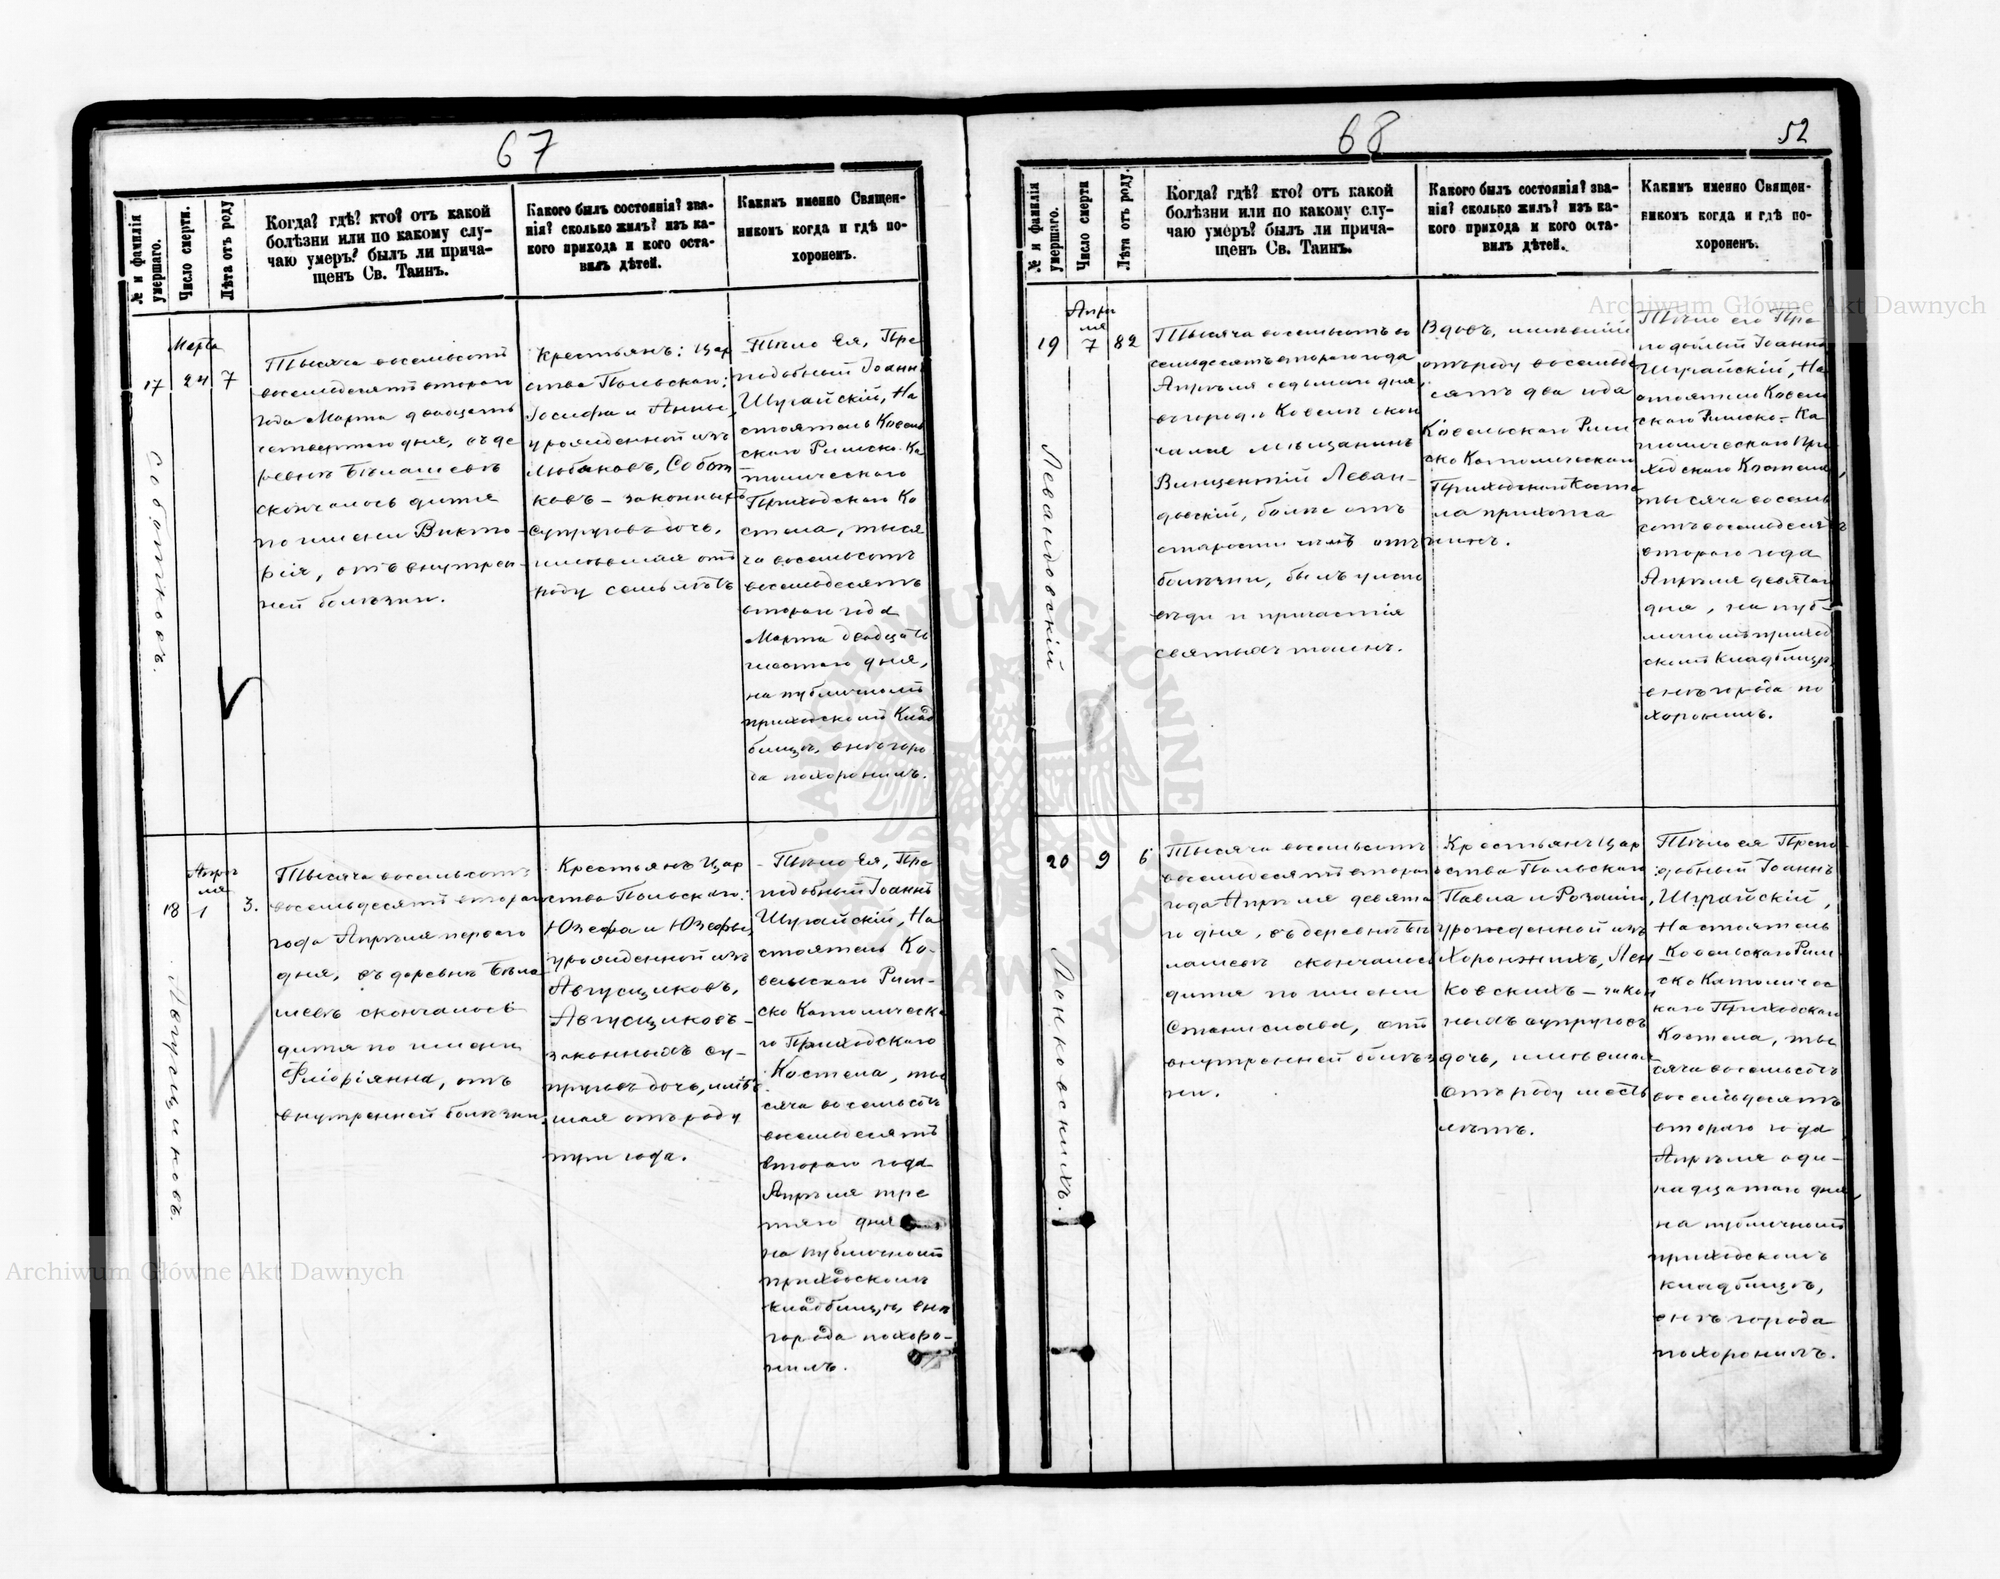 67
№ и фамилія умершаго.
Число смерти.
Лѣта отъ роду
Когда? гдѣ? кто? отъ какой
болѣзни или по какому слу-
чаю умеръ? былъ ли прича-
щенъ Св. Таинъ.
Какого былъ состоянія? зва-
нія? сколько жилъ? изъ ка-
кого прихода и кого оста-
вилъ дѣтей.
Какимъ именно Священ-
никомъ когда и гдѣ по-
хороненъ.
17
Соботковъ.
Марта
24
7
Тысяча восемьсотъ
восемьдесятъ второго
года Марта двадцать
четвертаго дня, въ де
ревнѣ Бѣлашевѣ
скончалось дитя
по имени Викто-
рія, отъ внутрен-
ней болѣзни.
Крестьянъ: Цар
ства Польскаго:
Іосифа и Анны,
урожденной изъ
Любяковъ, Собот
ковъ – законныхъ
супруговъ дочь,
имѣвшая отъ
роду семь лѣтъ
Тѣло Ея, Пре
подобный Іоаннъ
Шугайскій, На
стоятель Ковель
скаго Римско-Ка
толическаго
Приходскаго Ко
стела, тыся
ча восемьсотъ
восемьдесятъ
второго года
Марта двадцать
шестаго дня,
на публичномъ
приходскомъ Клад
бищѣ, внѣ горо
да похоронилъ.
18
Августиковъ.
Апрѣ
ля
1
3.
Тысяча восемьсотъ
восемьдесятъ второго
года Апрѣля перваго
дня, въ деревнѣ Бѣла
шевѣ скончалось
дитя по имени
Фліоріянна, отъ
внутренней болѣзни.
Крестьянъ Цар
ства Польскаго:
Юзефа и Юзефы,
урожденной изъ
Авгусциковъ,
Авгусциковъ –
законныхъ су-
пруговъ дочь, имѣв
шая отъ роду
три года.
Тѣло Ея, Пре
подобный Іоаннъ
Шугайскій, На
стоятель Ко-
вельскаго Рим-
ско Католическа
го Приходскаго
Костела, ты
сяча восемьсотъ
восемьдесятъ
втораго года
Апрѣля тре
тяго дня
на публичномъ
приходскомъ
кладбищѣ, внѣ
города похоро-
нилъ.
68
52
№ и фамилія умершаго.
Число смерти
Лѣта отъ роду.
Когда? гдѣ? кто? отъ какой
болѣзни или по какому слу-
чаю умеръ? былъ ли прича-
щенъ Св. Таинъ.
Какого былъ состоянія? зва-
нія? сколько жилъ? изъ ка-
кого прихода и кого оста-
вилъ дѣтей.
Какимъ именно Священ-
никомъ когда и гдѣ по-
хороненъ.
19
Левандовскій
Апрѣ
ля
7
82
Тысяча восемьсотъ во
семьдесятъ второго года
Апрѣля седьмаго дня
въ городѣ Ковелѣ скон
чался мѣщанинъ
Винцентій Леван-
довскій, болѣе отъ
старости чѣмъ отъ
болѣзни, былъ у испо
вѣди и причастія
святыхъ таинъ.
Вдовъ, имѣвшій
отъ роду восемьде
сятъ два года
Ковельскаго Рим
ско Католическаго
Приходскаго Косте
ла прихожа
нинъ.
Тѣло его Пре
подобный Іоаннъ
Шугайскій, На
стоятель Ковель
скаго Римско-Ка
толическаго При
ходскаго Костела,
тысяча восемь
сотъ восемьдесятъ
второго года
Апрѣля девятаго
дня, на пуб-
личномъ приход
скомъ Кладбищѣ,
внѣ города по
хоронилъ.
20
Лонковскихъ.
9
6
Тысяча восемьсотъ
восемьдесятъ второго
года Апрѣля девята
го дня, въ деревнѣ Бѣ
лашевѣ скончалось
дитя по имени
Станислава, отъ
внутренней болѣз
ни.
Крестьянъ Цар
ства Польскаго
Павла и Розаліи,
урожденной изъ
Хоронжихъ, Лон
ковскихъ – закон
ныхъ супруговъ
дочь, имѣвшая
отъ роду шесть
лѣтъ.
Тѣло ея Препо
добный Іоаннъ
Шугайскій,
Настоятель
Ковельскаго Рим
ско Католичес
каго Приходскаго
Костела, ты
сяча восемьсотъ
восемьдесятъ
втораго года
Апрѣля оди-
надцатаго дня,
на публичномъ
приходскомъ
кладбищѣ,
внѣ города
похоронилъ.
Archiwum Główne Akt Dawnych
Archiwum Główne Akt Dawnych
ARCHIWUM GŁÓWNE AKT DAWNYCH